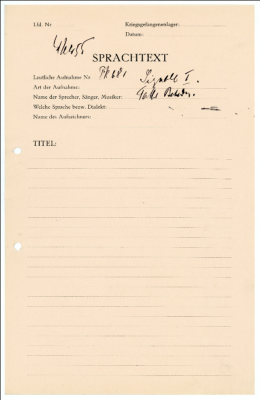 Lfd. Nr    Kriegsgefangenenlager:
Datum:
SPRACHTEXT
Lautliche Aufnahme Nr
Art der Aufnahme:
Name der Sprecher, Sänger, Musiker:
Welche Sprache bezw. Dialekt:
Name des Aufzeichners:
TITEL: